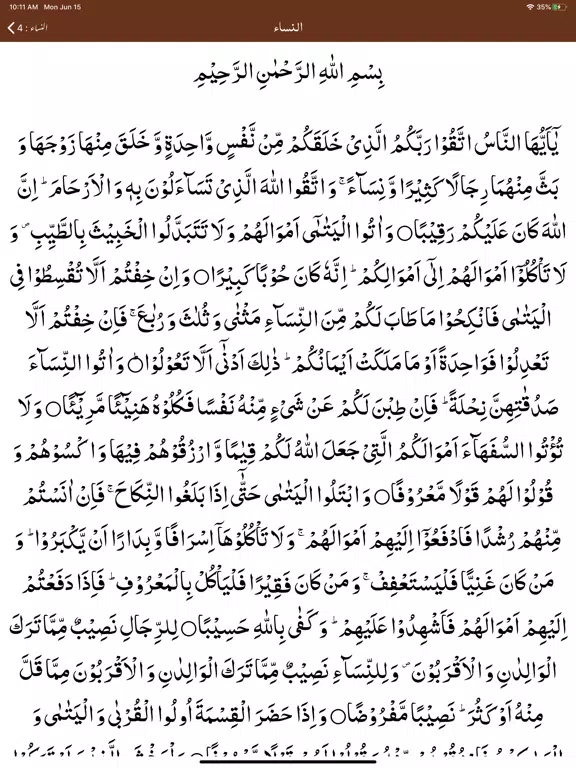 10:11 AM Mon Jun 15 35%
النساء : 4 النساء
بِسْمِ اللّٰهِ الرَّحْمٰنِ الرَّحِيْمِ
يٰۤاَيُّهَا النَّاسُ اتَّقُوْا رَبَّكُمُ الَّذِىْ خَلَقَكُمْ مِّنْ نَّفْسٍ وَّاحِدَةٍ وَّخَلَقَ مِنْهَا زَوْجَهَا وَ
بَثَّ مِنْهُمَا رِجَالًا كَثِيْرًا وَّنِسَآءً‌ ۚ وَاتَّقُوا اللّٰهَ الَّذِىْ تَسَآءَلُوْنَ بِهٖ وَالْاَرْحَامَ‌ ؕ اِنَّ
اللّٰهَ كَانَ عَلَيْكُمْ رَقِيْبًا‏ ○ وَاٰتُوا الْيَتٰمٰٓى اَمْوَالَهُمْ‌ وَلَا تَتَبَدَّلُوا الْخَبِيْثَ بِالطَّيِّبِ ۖ وَ
لَا تَاْكُلُوْۤا اَمْوَالَهُمْ اِلٰٓى اَمْوَالِكُمْ‌ ؕ اِنَّهٗ كَانَ حُوْبًا كَبِيْرًا‏ ○ وَاِنْ خِفْتُمْ اَلَّا تُقْسِطُوْا فِى
الْيَتٰمٰى فَانْكِحُوْا مَا طَابَ لَكُمْ مِّنَ النِّسَآءِ مَثْنٰى وَثُلٰثَ وَرُبٰعَ‌ ۚ فَاِنْ خِفْتُمْ اَلَّا
تَعْدِلُوْا فَوَاحِدَةً اَوْ مَا مَلَكَتْ اَيْمَانُكُمْ‌ ؕ ذٰلِكَ اَدْنٰٓى اَلَّا تَعُوْلُوْا ○ وَاٰتُوا النِّسَآءَ
صَدُقٰتِهِنَّ نِحْلَةً‌ ؕ فَاِنْ طِبْنَ لَكُمْ عَنْ شَىْءٍ مِّنْهُ نَفْسًا فَكُلُوْهُ هَنِيْٓئًا مَّرِيْٓئًا‏ ○ وَلَا
تُؤْتُوا السُّفَهَآءَ اَمْوَالَكُمُ الَّتِىْ جَعَلَ اللّٰهُ لَكُمْ قِيٰمًا وَّارْزُقُوْهُمْ فِيْهَا وَاكْسُوْهُمْ وَ
قُوْلُوْا لَهُمْ قَوْلًا مَّعْرُوْفًا‏ ○ وَابْتَلُوا الْيَتٰمٰى حَتّٰٓى اِذَا بَلَغُوا النِّكَاحَ‌ ۚ فَاِنْ اٰنَسْتُمْ
مِّنْهُمْ رُشْدًا فَادْفَعُوْۤا اِلَيْهِمْ اَمْوَالَهُمْ‌ ۚ وَلَا تَاْكُلُوْهَاۤ اِسْرَافًا وَّبِدَارًا اَنْ يَّكْبَرُوْا‌ ؕ وَ
مَنْ كَانَ غَنِيًّا فَلْيَسْتَعْفِفْ‌ ۚ وَمَنْ كَانَ فَقِيْرًا فَلْيَاْكُلْ بِالْمَعْرُوْفِ‌ ؕ فَاِذَا دَفَعْتُمْ
اِلَيْهِمْ اَمْوَالَهُمْ فَاَشْهِدُوْا عَلَيْهِمْ‌ ؕ وَكَفٰى بِاللّٰهِ حَسِيْبًا‏ ○ لِلرِّجَالِ نَصِيْبٌ مِّمَّا تَرَكَ
الْوَالِدٰنِ وَالْاَقْرَبُوْنَ ۖ وَلِلنِّسَآءِ نَصِيْبٌ مِّمَّا تَرَكَ الْوَالِدٰنِ وَالْاَقْرَبُوْنَ مِمَّا قَلَّ
مِنْهُ اَوْ كَثُرَ‌ ؕ نَصِيْبًا مَّفْرُوْضًا‏ ○ وَاِذَا حَضَرَ الْقِسْمَةَ اُولُوا الْقُرْبٰى وَالْيَتٰمٰى وَ